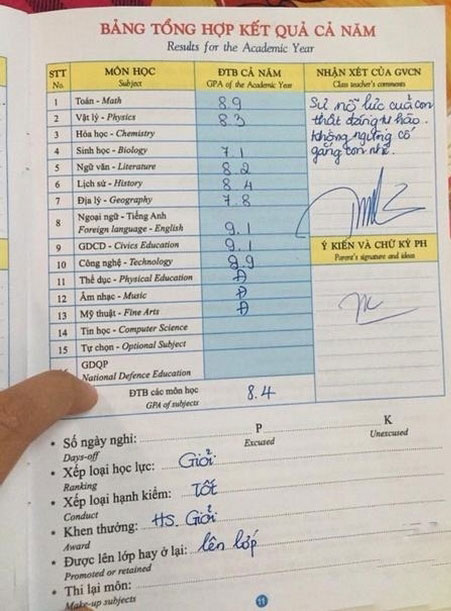 BẢNG TỔNG HỢP KẾT QUẢ CẢ NĂM
Results for the Academic Year
STT No. MÔN HỌC Subject ĐTB CẢ NĂM GPA of the Academic Year NHẬN XÉT CỦA GVCN Class teacher's comments
1 Toán - Math 8.9
2 Vật lý - Physics 8.3
3 Hóa học - Chemistry
4 Sinh học - Biology 7.1
5 Ngữ văn - Literature 8.2
6 Lịch sử - History 8.4
7 Địa lý - Geography 7.8
8 Ngoại ngữ - Tiếng Anh
Foreign language - English 9.1
9 GDCD - Civics Education 9.1
10 Công nghệ - Technology 9.9
11 Thể dục - Physical Education Đ
12 Âm nhạc - Music Đ
13 Mỹ thuật - Fine Arts Đ
14 Tin học - Computer Science
15 Tự chọn - Optional Subject
GDQP
National Defence Education
ĐTB các môn học 8.4
GPA of subjects
Sự nỗ lực của con
thật đáng tự hào.
Không ngừng cố
gắng con nhé.
Ý KIẾN VÀ CHỮ KÝ PH
Parent's signature and ideas
• Số ngày nghỉ: P K
Days-off Excused Unexcused
• Xếp loại học lực: Giỏi
Ranking
• Xếp loại hạnh kiểm: Tốt
Conduct
• Khen thưởng: HS. Giỏi
Award
• Được lên lớp hay ở lại: lên lớp
Promoted or retained
• Thi lại môn:
Make-up subjects
11